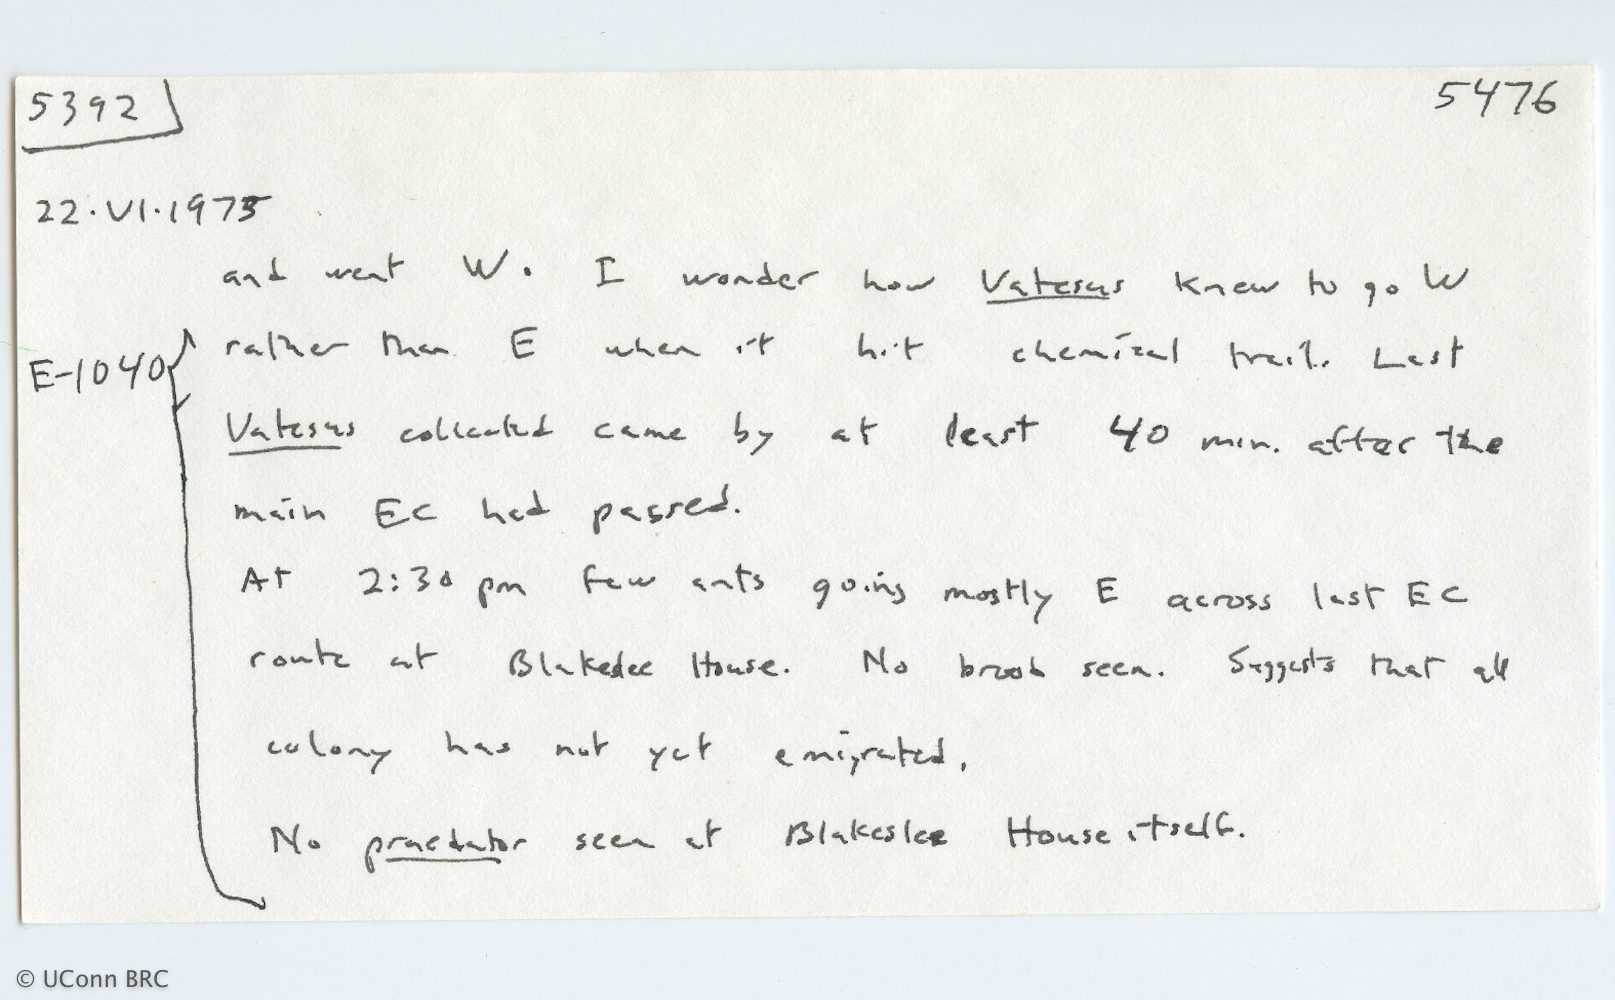 5392
5476
22.VI.1975
and went W. I wonder how Vatesus knew to go W
E-1040
rather than E when it hit chemical trail. Last
Vatesus collected came by at least 40 min. after the
main EC had passed.
At 2:30 pm few ants going mostly E across last EC
route at Blakeslee House. No brood seen. Suggests that all
colony has not yet emigrated.
No praedator seen at Blakeslee House itself.
© UConn BRC